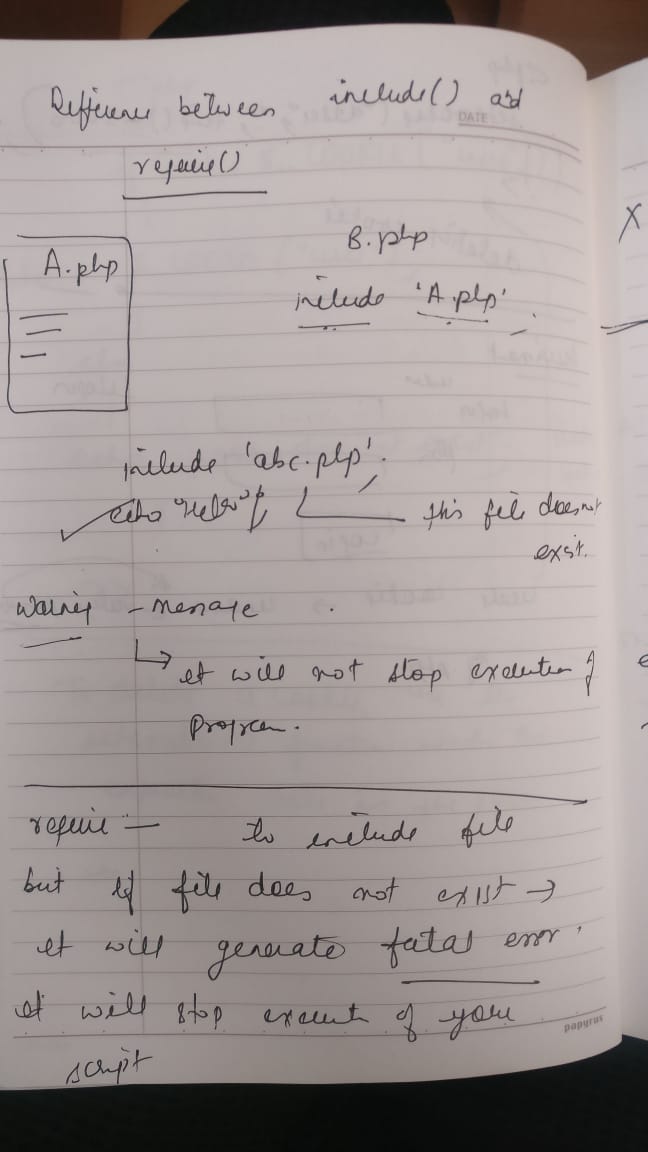 Difference between include() and
DATE
require()
A.php
B.php
include 'A.php'
include 'abc.php'.
echo "Hello";
this file does not
exsit.
Warning - Message
It will not stop execution of
program.
require - to include file
but if file does not exist →
it will generate fatal error.
it will stop execut of your
script
papyrus